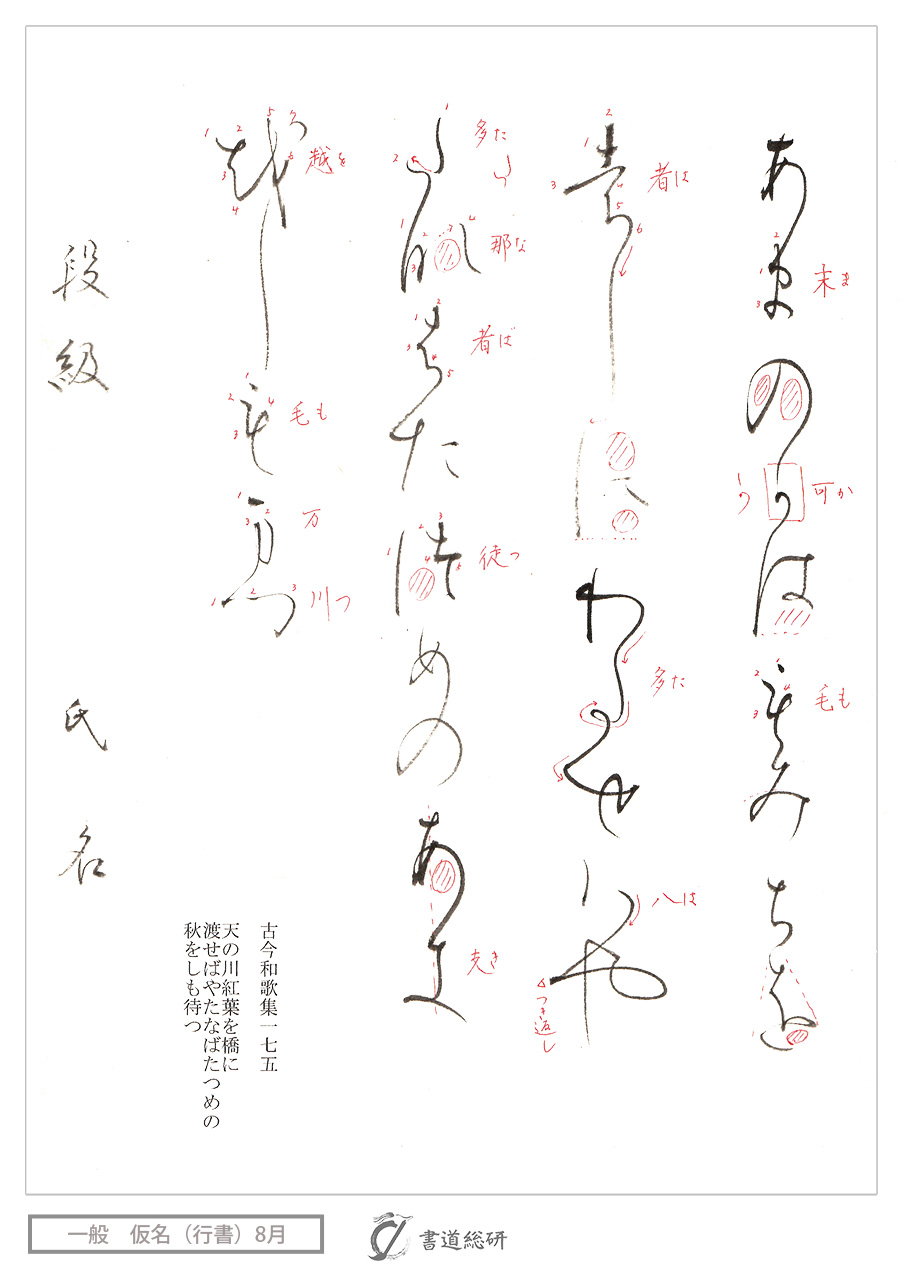 あ末の可は毛みちを
末ま
可か
毛も
者しにわ多せ八や
者は
多た
八は
つき返し
多那者た徒めのあ支
多た
那な
者ば
徒つ
越し毛万川
越を
毛も
万
川つ
段級 氏名
古今和歌集一七五
天の川紅葉を橋に
渡せばやたなばたつめの
秋をしも待つ
一般 仮名（行書）8月
書道総研